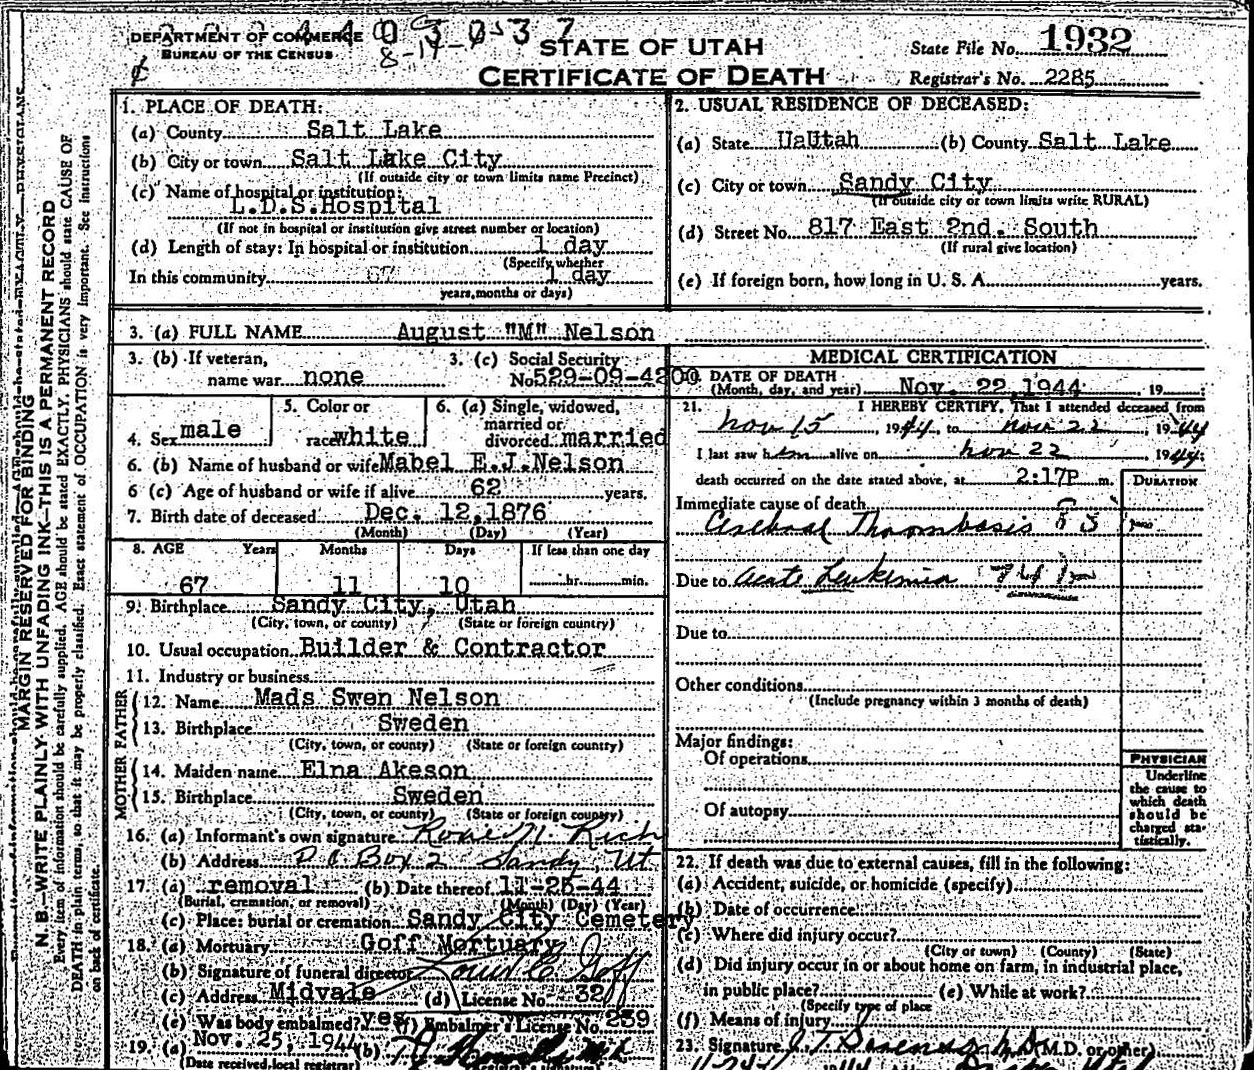 DEPARTMENT OF COMMERCE
BUREAU OF THE CENSUS
STATE OF UTAH
CERTIFICATE OF DEATH
State File No. 1932
Registrar's No. 2285
MARGIN RESERVED FOR BINDING
N. B.—WRITE PLAINLY WITH UNFADING INK—THIS IS A PERMANENT RECORD
Every item of information should be carefully supplied. AGE should be stated EXACTLY. PHYSICIANS should state CAUSE OF
DEATH in plain terms, so that it may be properly classified. Exact statement of OCCUPATION is very important. See instructions
on back of certificate.
1. PLACE OF DEATH:
(a) County Salt Lake
(b) City or town Salt Lake City
(If outside city or town limits name Precinct)
(c) Name of hospital or institution:
L.D.S.Hospital
(If not in hospital or institution give street number or location)
(d) Length of stay: In hospital or institution 1 day
(Specify whether
In this community 67 1 day
years, months or days)
2. USUAL RESIDENCE OF DECEASED:
(a) State UaUtah (b) County Salt Lake
(c) City or town Sandy City
(If outside city or town limits write RURAL)
(d) Street No. 817 East 2nd. South
(If rural give location)
(e) If foreign born, how long in U. S. A. years.
3. (a) FULL NAME August "M" Nelson
3. (b) If veteran,
name war none
3. (c) Social Security
No. 529-09-4200
4. Sex male
5. Color or
race white
6. (a) Single, widowed,
married or
divorced married
6. (b) Name of husband or wife Mabel E.J.Nelson
6 (c) Age of husband or wife if alive 62 years.
7. Birth date of deceased Dec. 12,1876
(Month) (Day) (Year)
8. AGE Years Months Days If less than one day
67 11 10 hr. min.
9. Birthplace Sandy City, Utah
(City, town, or county) (State or foreign country)
10. Usual occupation Builder & Contractor
11. Industry or business
FATHER
12. Name Mads Swen Nelson
13. Birthplace Sweden
(City, town, or county) (State or foreign country)
MOTHER
14. Maiden name Elna Akeson
15. Birthplace Sweden
(City, town, or county) (State or foreign country)
16. (a) Informant's own signature Rich
(b) Address P O Box 2 Sandy, Ut
17. (a) removal (b) Date thereof 11-25-44
(Burial, cremation, or removal) (Month) (Day) (Year)
(c) Place: burial or cremation Sandy City Cemetery
18. (a) Mortuary Goff Mortuary
(b) Signature of funeral director Goff
(c) Address Midvale (d) License No. 32
(e) Was body embalmed? yes (f) Embalmer's License No. 239
19. (a) Nov. 25, 1944 (b)
(Date received local registrar)
MEDICAL CERTIFICATION
20. DATE OF DEATH
(Month, day, and year) Nov. 22,1944, 19
21. I HEREBY CERTIFY, That I attended deceased from
Nov 15, 1944, to Nov 22, 1944
I last saw him alive on Nov 22 1944;
death occurred on the date stated above, at 2:17P m.
DURATION
Immediate cause of death
Cerebral Thrombosis
Due to Acute Leukemia
Due to
Other conditions
(Include pregnancy within 3 months of death)
Major findings:
Of operations
Of autopsy
PHYSICIAN
Underline
the cause to
which death
should be
charged sta-
tistically.
22. If death was due to external causes, fill in the following:
(a) Accident, suicide, or homicide (specify)
(b) Date of occurrence
(c) Where did injury occur?
(City or town) (County) (State)
(d) Did injury occur in or about home on farm, in industrial place,
in public place? (e) While at work?
(Specify type of place
(f) Means of injury
23. Signature (M.D. or other)